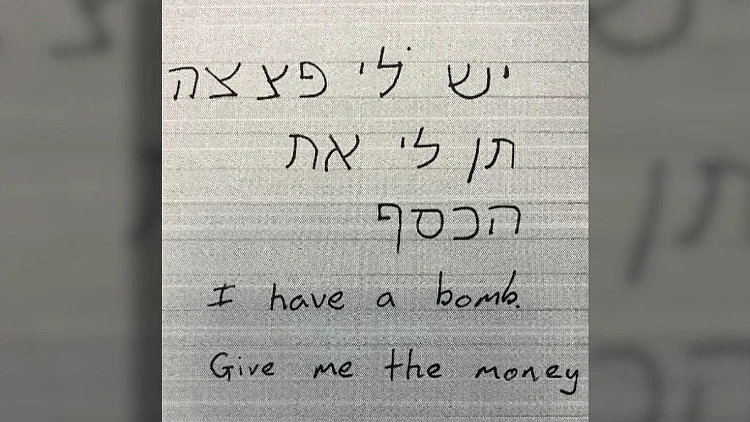 יש לי פצצה
תן לי את
הכסף
I have a bomb.
Give me the money